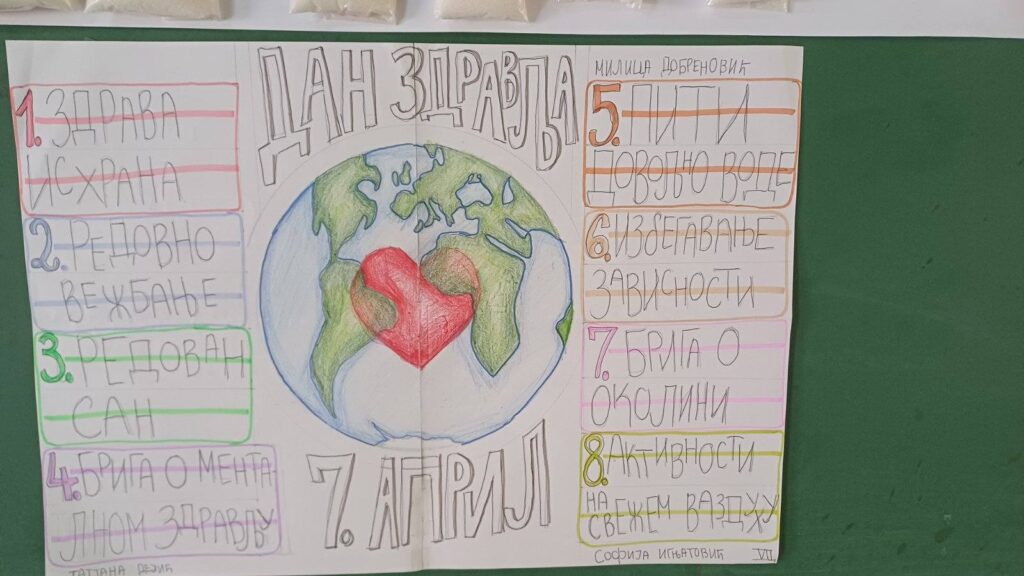 ДАН ЗДРАВЉА
1. ЗДРАВА
ИСХРАНА
2. РЕДОВНО
ВЕЖБАЊЕ
3. РЕДОВАН
САН
4. БРИГА О МЕНТА
ЛНОМ ЗДРАВЉУ
ТАТЈАНА
7. АПРИЛ
МИЛИЦА ДОБРЕНОВИЋ
5. ПИТИ
ДОВОЉНО ВОДЕ
6. ИЗБЕГАВАЊЕ
ЗАВИСНОСТИ
7. БРИГА О
ОКОЛИНИ
8. АКТИВНОСТИ
НА
СВЕЖЕМ ВАЗДУХУ
СОФИЈА ИГЊАТОВИЋ VII